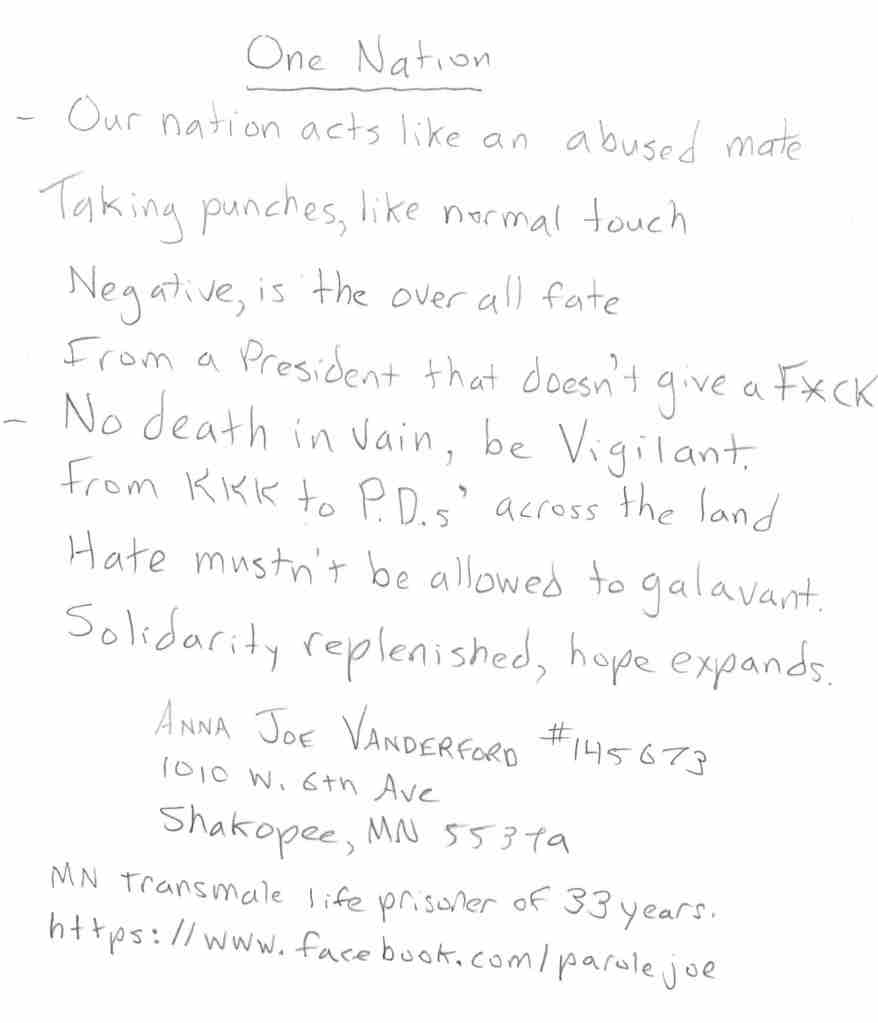 One Nation
- Our nation acts like an abused mate
Taking punches, like normal touch
Negative, is the over all fate
From a President that doesn't give a F*CK
- No death in vain, be Vigilant.
From KKK to P.D.s' across the land
Hate mustn't be allowed to galavant.
Solidarity replenished, hope expands.
ANNA JOE VANDERFORD #145673
1010 W. 6th Ave
Shakopee, MN 55379
MN transmale life prisoner of 33 years.
https://www.facebook.com/parolejoe